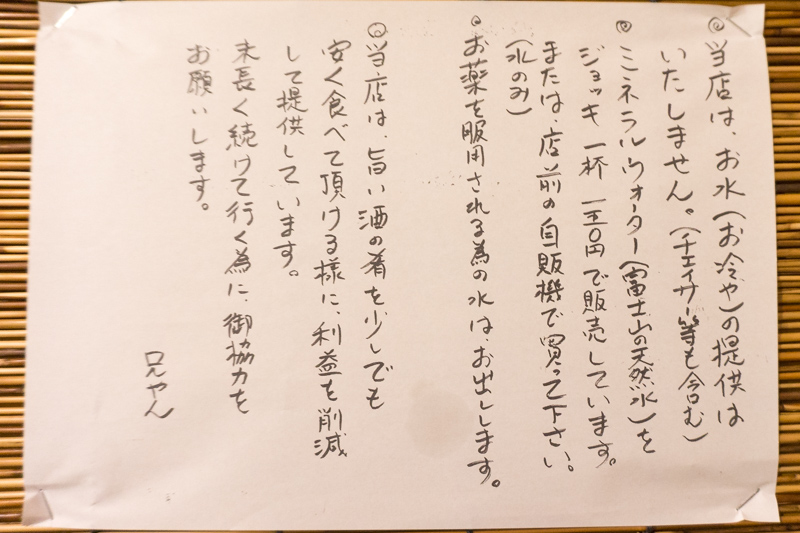 ◎当店は、お水(お冷や)の提供は
いたしません。(チェイサー等も含む)
◎ミネラルウォーター(富士山の天然水)を
ジョッキ一杯 一五〇円で販売しています。
または、店前の自販機で買って下さい。
(水のみ)
・お薬を服用される為の水は、お出しします。
◎当店は、旨い酒の肴を少しでも
安く食べて頂ける様に、利益を削減
して提供しています。
末長く続けて行く為に、御協力を
お願いします。
兄やん